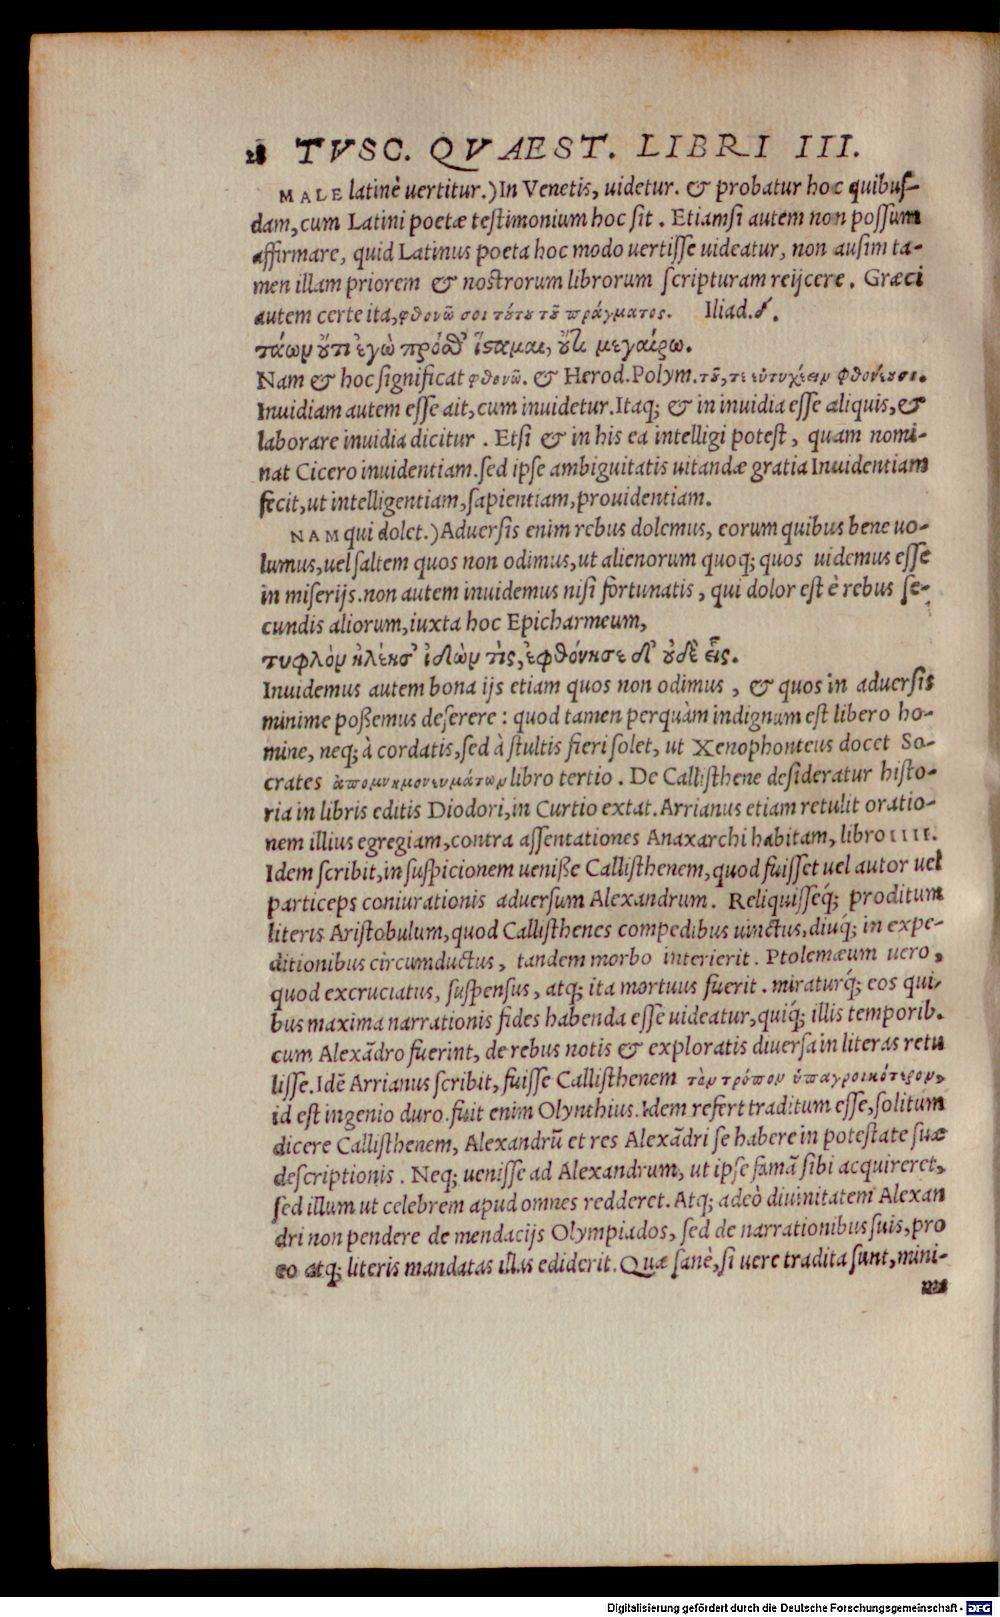 28 TVSC. QVAEST. LIBRI III.
MALE latinè uertitur.) In Venetis, uidetur. & probatur hoc quibuſ-
dam, cum Latini poetæ teſtimonium hoc ſit. Etiamſi autem non poſſum
affirmare, quid Latinus poeta hoc modo uertiſſe uideatur, non auſim ta-
men illam priorem & noſtrorum librorum ſcripturam reijcere. Græci
autem certe ita, φθονῶ σοι τούτου τοῦ πράγματος. Iliad. δ.
τάων οὔτι ἐγὼ πρόσθ' ἵσταμαι, οὔτε μεγαίρω.
Nam & hoc ſignificat φθονῶ. & Herod. Polym. τοῦ, τε εὐτυχέειν φθονέουσι.
Inuidiam autem eſſe ait, cum inuidetur. Itaq; & in inuidia eſſe aliquis, &
laborare inuidia dicitur. Etſi & in his ea intelligi poteſt, quam nomi-
nat Cicero inuidentiam. ſed ipſe ambiguitatis uitandæ gratia Inuidentiam
fecit, ut intelligentiam, ſapientiam, prouidentiam.
NAM qui dolet.) Aduerſis enim rebus dolemus, eorum quibus bene uo-
lumus, uel ſaltem quos non odimus, ut alienorum quoq; quos uidemus eſſe
in miſerijs. non autem inuidemus niſi fortunatis, qui dolor eſt è rebus ſe-
cundis aliorum, iuxta hoc Epicharmeum,
τυφλὸν ἠλέησ' ἰδών τὶς, ἐφθόνησε δ' οὐδὲ εἷς.
Inuidemus autem bona ijs etiam quos non odimus, & quos in aduerſis
minime poßemus deſerere: quod tamen perquàm indignum eſt libero ho-
mine, neq; à cordatis, ſed à ſtultis fieri ſolet, ut Xenophonteus docet So-
crates ἀπομνημονευμάτων libro tertio. De Calliſthene deſideratur hiſto-
ria in libris editis Diodori, in Curtio extat. Arrianus etiam retulit oratio-
nem illius egregiam, contra aſſentationes Anaxarchi habitam, libro IIII.
Idem ſcribit, in ſuſpicionem ueniße Calliſthenem, quod fuiſſet uel autor uel
particeps coniurationis aduerſum Alexandrum. Reliquiſſeq́; proditum
literis Ariſtobulum, quod Calliſthenes compedibus uinctus, diuq́; in expe-
ditionibus circumductus, tandem morbo interierit. Ptolemæum uero,
quod excruciatus, ſuſpenſus, atq; ita mortuus fuerit. miraturq́; eos qui-
bus maxima narrationis fides habenda eſſe uideatur, quiq́; illis temporib.
cum Alexãdro fuerint, de rebus notis & exploratis diuerſa in literas retu
liſſe. Idẽ Arrianus ſcribit, fuiſſe Calliſthenem τὸν τρόπον ὑπαγροικότερον,
id eſt ingenio duro. fuit enim Olynthius. Idem refert traditum eſſe, ſolitum
dicere Calliſthenem, Alexandrũ et res Alexãdri ſe habere in poteſtate ſuæ
deſcriptionis. Neq; ueniſſe ad Alexandrum, ut ipſe famã ſibi acquireret,
ſed illum ut celebrem apud omnes redderet. Atq; adeò diuinitatem Alexan
dri non pendere de mendacijs Olympiados, ſed de narrationibus ſuis, pro
eo atq; literis mandatas illas ediderit. Quæ ſanè, ſi uere tradita ſunt, mini-
me
Digitalisierung gefördert durch die Deutsche Forschungsgemeinschaft - DFG